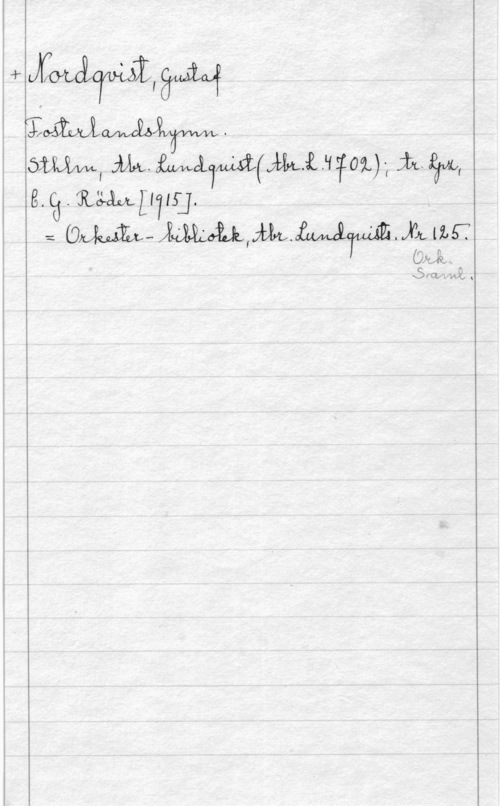 + Nordqvist, Gustaf
Fosterlandshymn.
Sthlm, Abr. Lundquist (Abr.L 4702); tr. Lpz,
C. G. Röder [1915].
= Orkester-bibliotek, Abr. Lundquists. Nr 125.
Ork.
Saml.